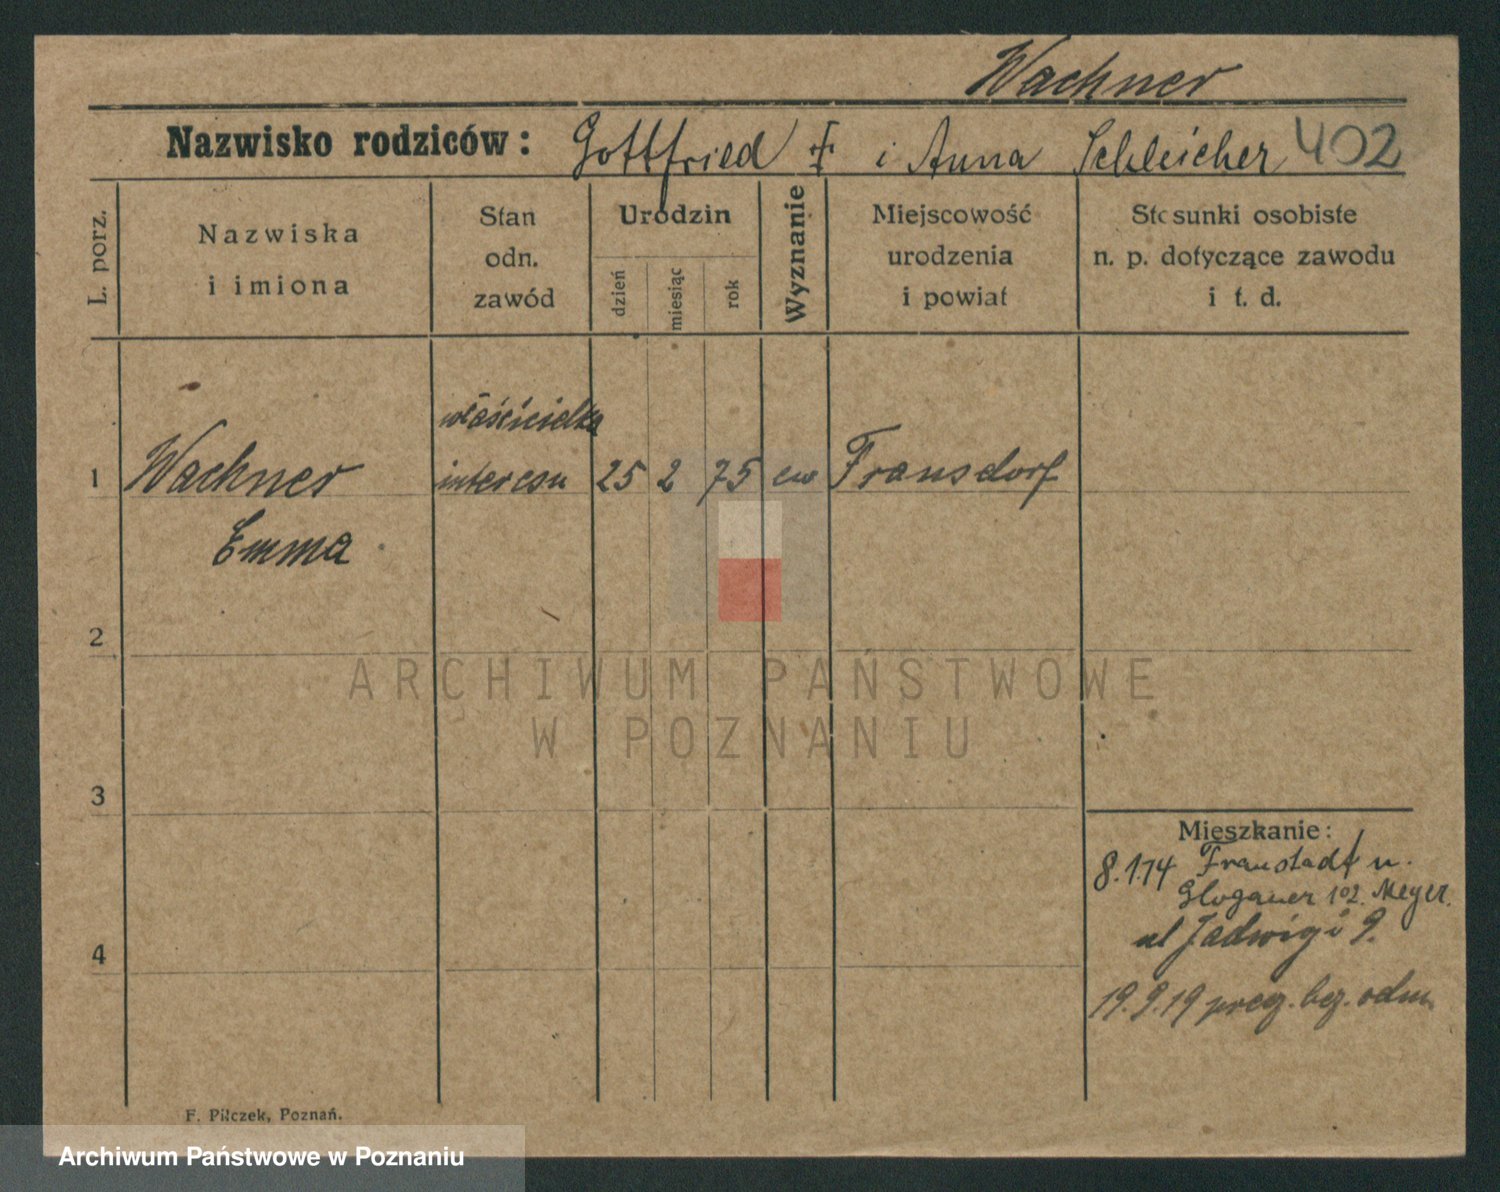 Wachner
Nazwisko rodziców: Gottfried i Anna Schleicher 402
L. porz.
Nazwiska
i imiona
Stan
odn.
zawód
Urodzin
dzień
miesiąc
rok
Wyznanie
Miejscowość
urodzenia
i powiat
Stosunki osobiste
n. p. dotyczące zawodu
i t. d.
właścicielka
1 Wachner interesu 25 2 75 ew Fransdorf
Emma
2
ARCHIWUM PAŃSTWOWE
W POZNANIU
3
Mieszkanie:
8.1.14 Fraustadt n.
Glogauer 102. Meyer.
4
ul Jadwigi 9.
19.9.19 bez. odm.
F. Pilczek, Poznań.
Archiwum Państwowe w Poznaniu